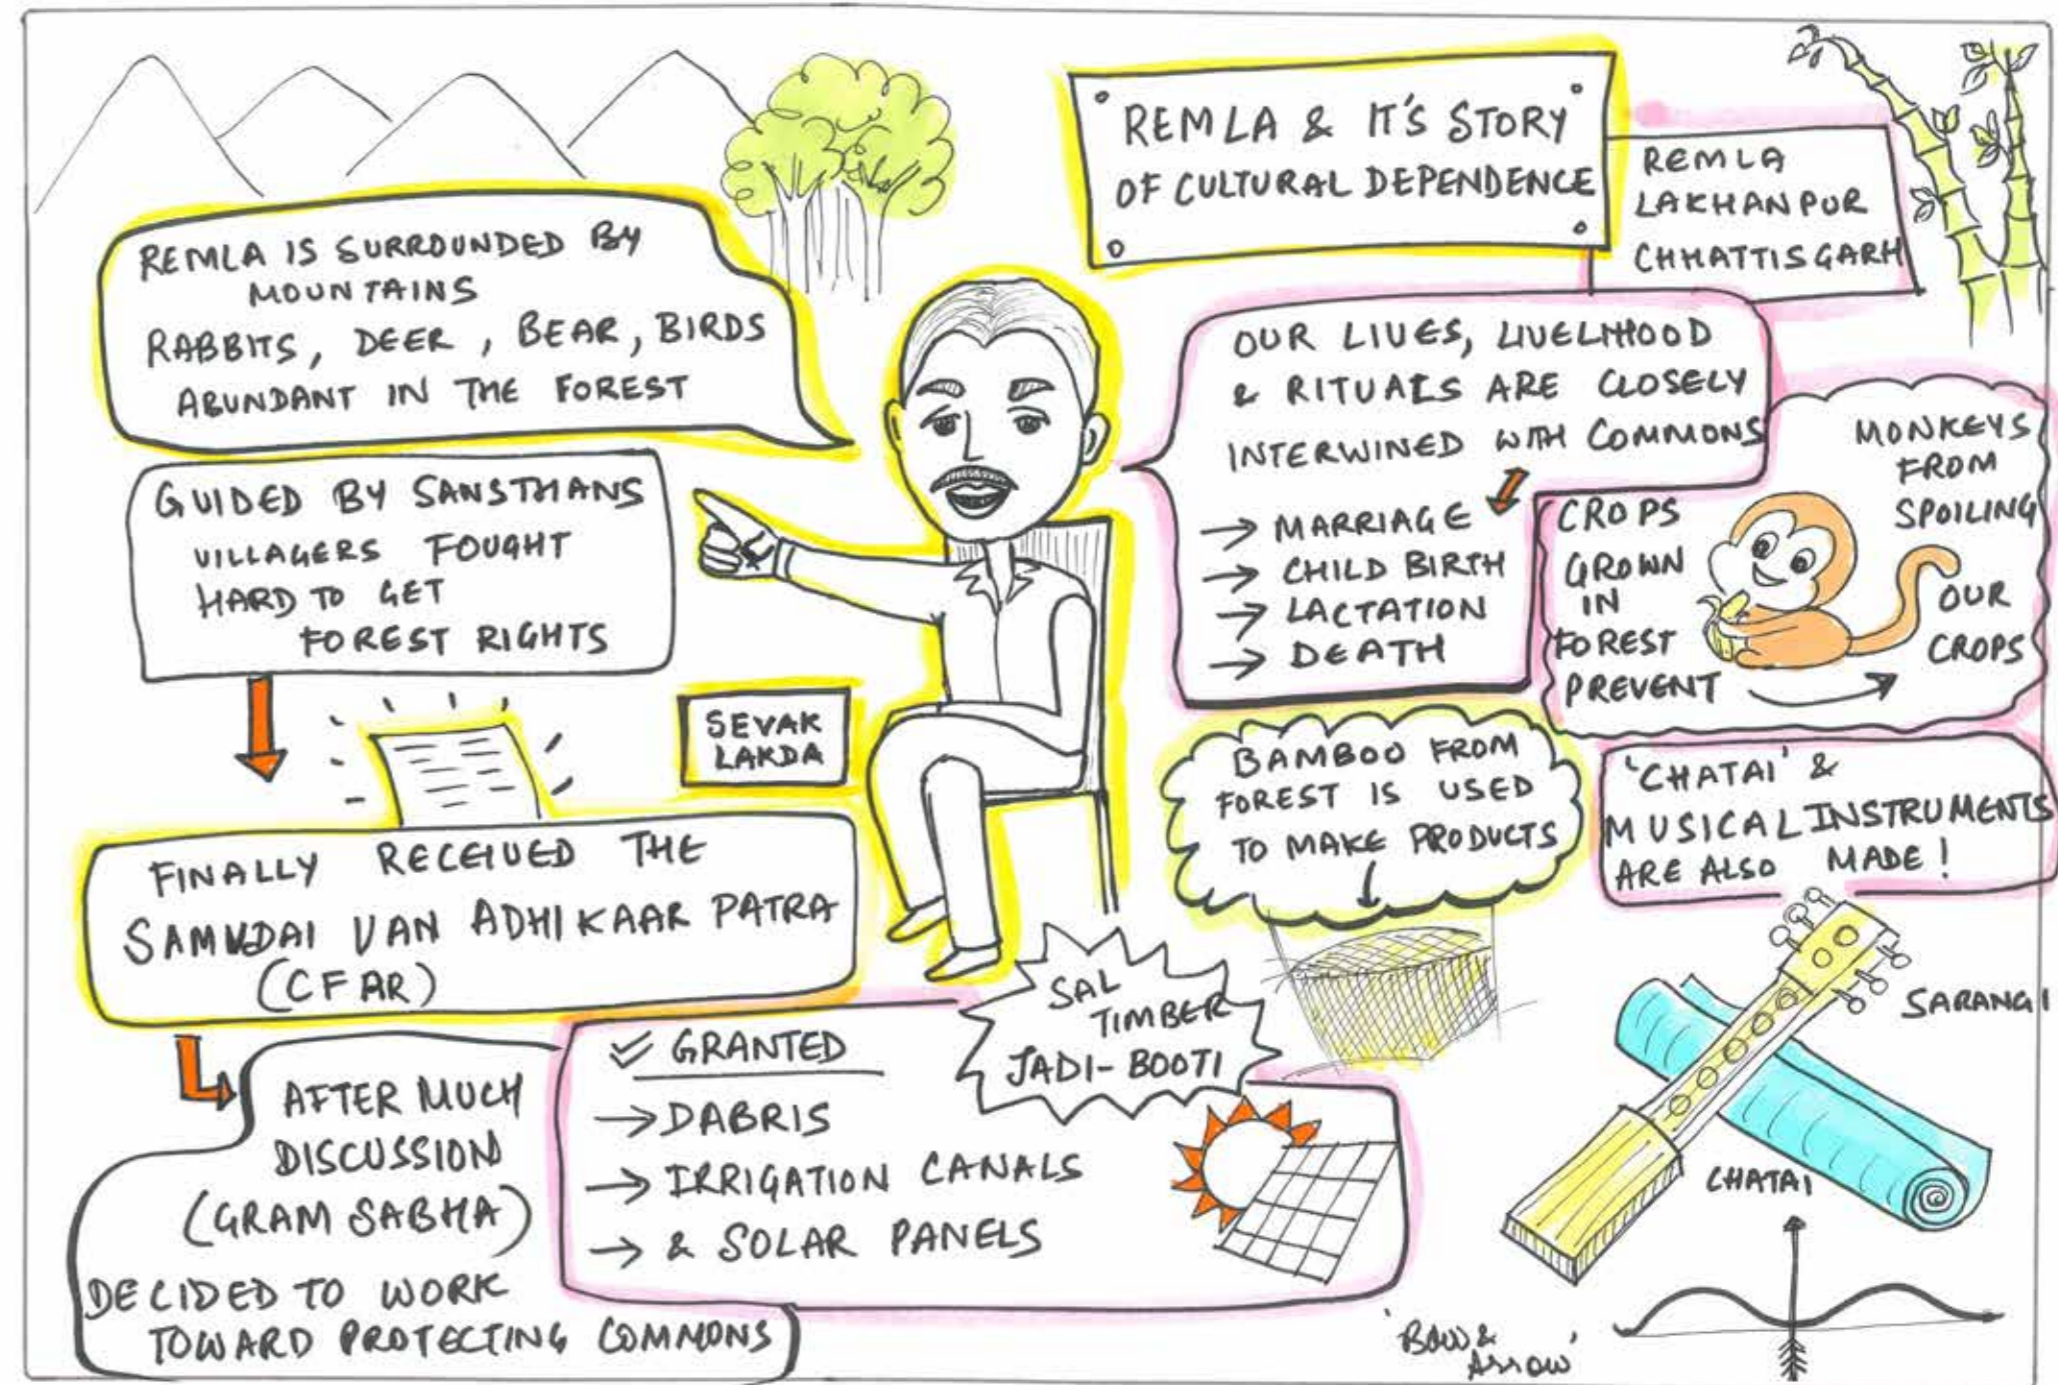 REMLA & IT'S STORY
OF CULTURAL DEPENDENCE
REMLA
LAKHANPUR
CHHATTISGARH
REMLA IS SURROUNDED BY
MOUNTAINS
RABBITS, DEER, BEAR, BIRDS
ABUNDANT IN THE FOREST
GUIDED BY SANSTHANS
VILLAGERS FOUGHT
HARD TO GET
FOREST RIGHTS
SEVAK
LAKDA
FINALLY RECEIVED THE
SAMUDAI VAN ADHIKAAR PATRA
(CFAR)
AFTER MUCH
DISCUSSION
(GRAM SABHA)
DECIDED TO WORK
TOWARD PROTECTING COMMONS
GRANTED
→ DABRIS
→ IRRIGATION CANALS
→ & SOLAR PANELS
SAL
TIMBER
JADI-BOOTI
OUR LIVES, LIVELIHOOD
& RITUALS ARE CLOSELY
INTERWINED WITH COMMONS
→ MARRIAGE
→ CHILD BIRTH
→ LACTATION
→ DEATH
CROPS
GROWN
IN
FOREST
PREVENT
MONKEYS
FROM
SPOILING
OUR
CROPS
BAMBOO FROM
FOREST IS USED
TO MAKE PRODUCTS
'CHATAI' &
MUSICAL INSTRUMENTS
ARE ALSO MADE!
SARANGI
CHATAI
'Bow &
Arrow'